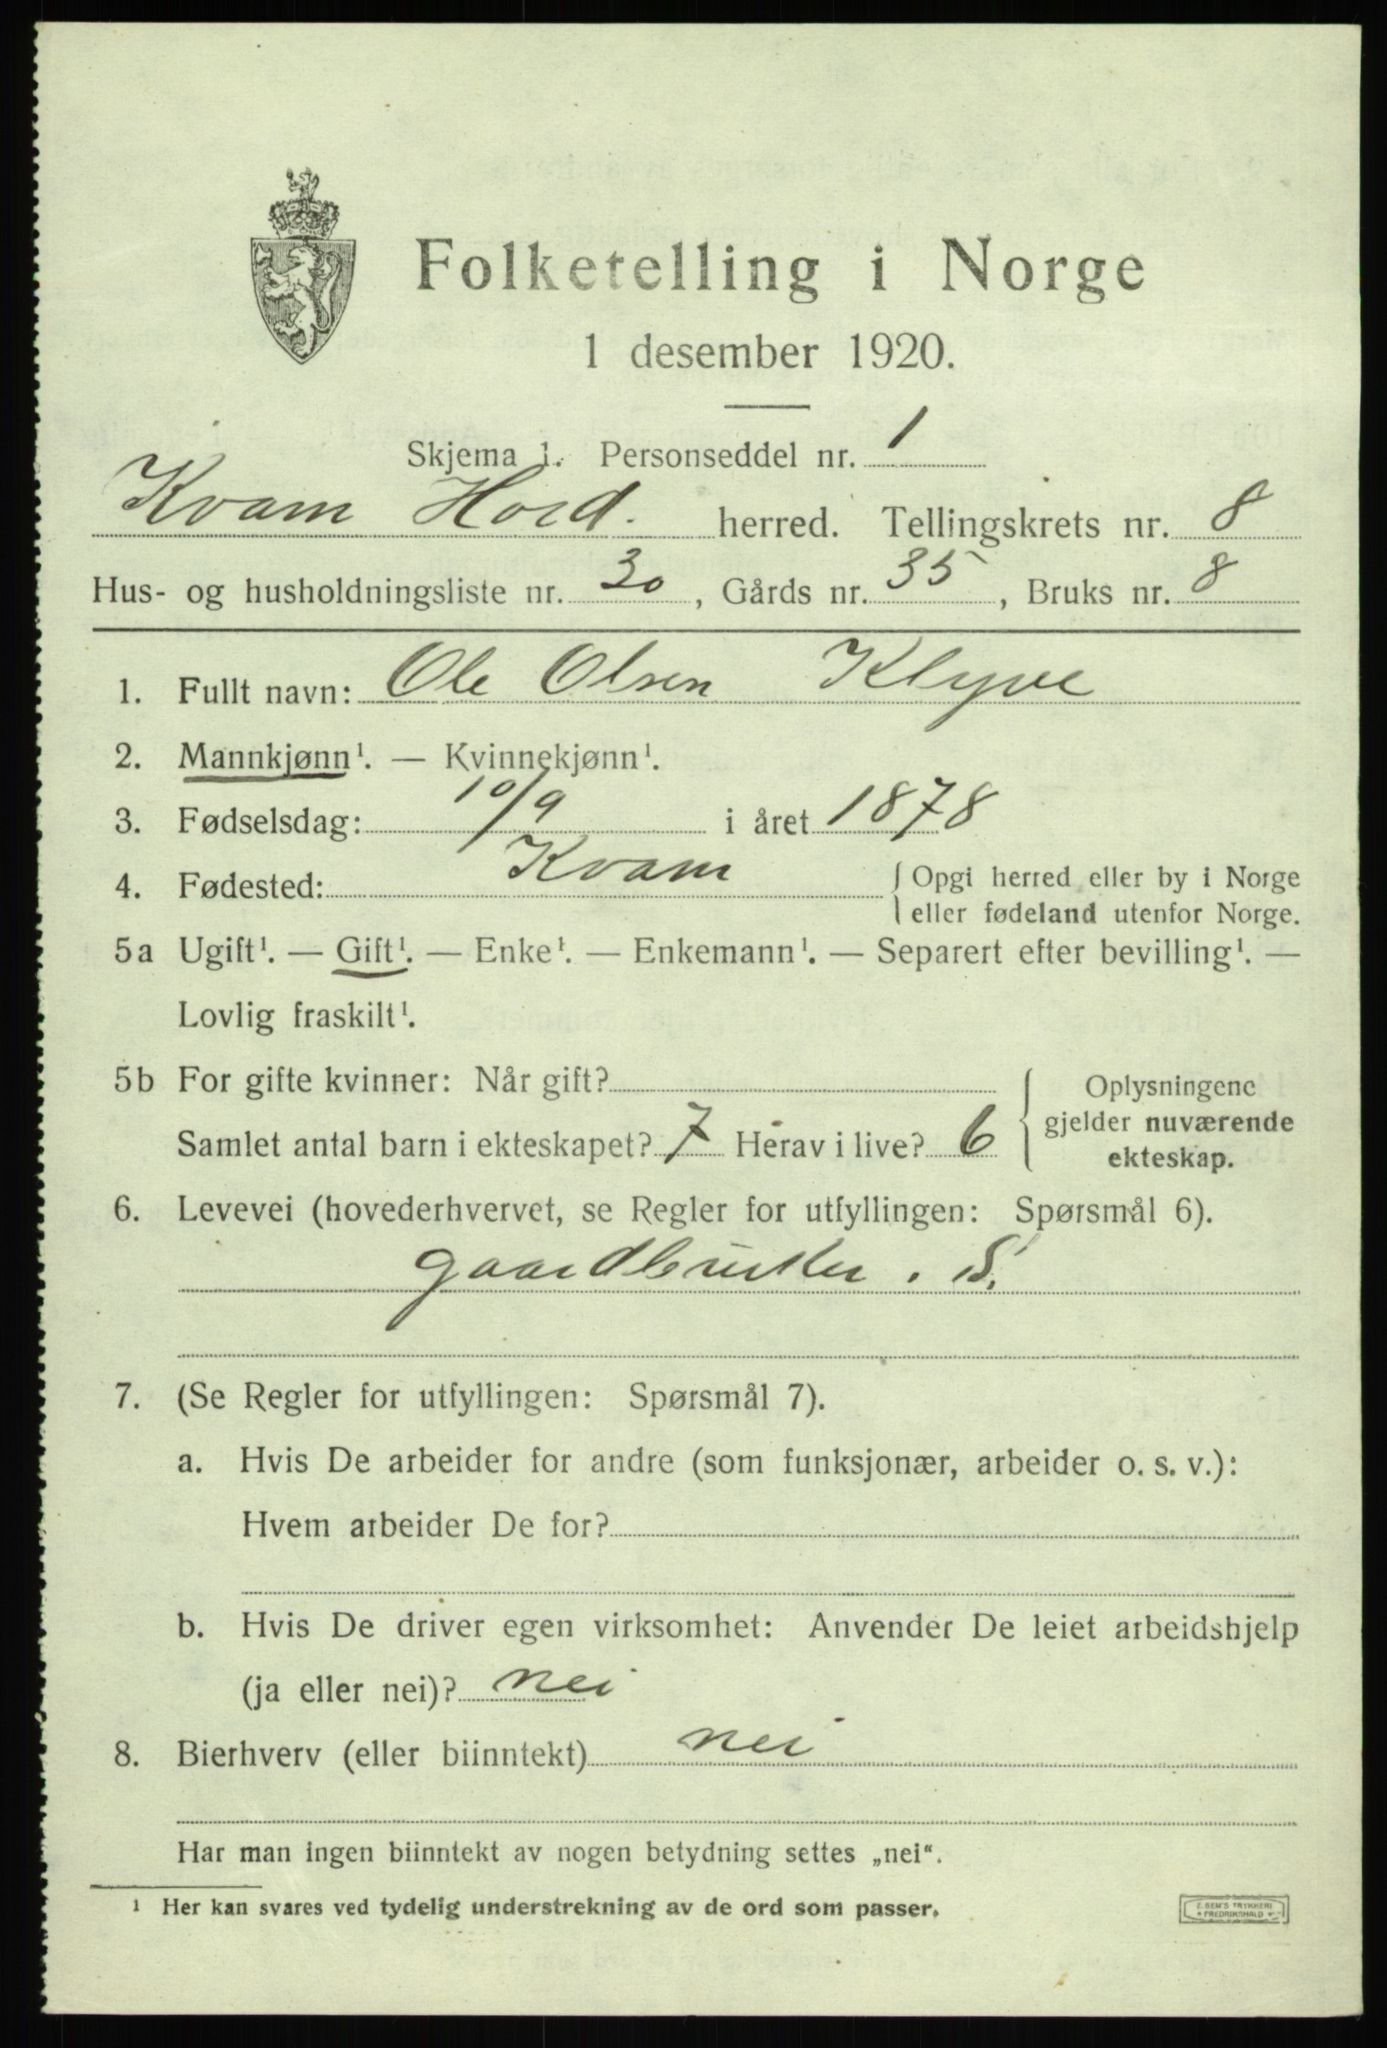 Folketelling i Norge
1 desember 1920.
Skjema 1. Personseddel nr. 1
Kvam Hord. herred. Tellingskrets nr. 8
Hus- og husholdningsliste nr. 30, Gårds nr. 35, Bruks nr. 8
1. Fullt navn: Ole Olsen Klyve
2. Mannkjønn¹. — Kvinnekjønn¹.
3. Fødselsdag: 10/9 i året 1878
4. Fødested: Kvam { Opgi herred eller by i Norge
eller fødeland utenfor Norge.
5a Ugift¹. — Gift¹. — Enke¹. — Enkemann¹. — Separert efter bevilling¹. —
Lovlig fraskilt¹.
5b For gifte kvinner: Når gift?
Samlet antal barn i ekteskapet? 7 Herav i live? 6
{ Oplysningene
gjelder nuværende
ekteskap.
6. Levevei (hovederhvervet, se Regler for utfyllingen: Spørsmål 6).
gaardbruker. S.
7. (Se Regler for utfyllingen: Spørsmål 7).
a. Hvis De arbeider for andre (som funksjonær, arbeider o. s. v.):
Hvem arbeider De for?
b. Hvis De driver egen virksomhet: Anvender De leiet arbeidshjelp
(ja eller nei)? nei
8. Bierhverv (eller biinntekt) nei
Har man ingen biinntekt av nogen betydning settes „nei“.
¹ Her kan svares ved tydelig understrekning av de ord som passer.
E. SEM'S TRYKKERI
FREDRIKSHALD